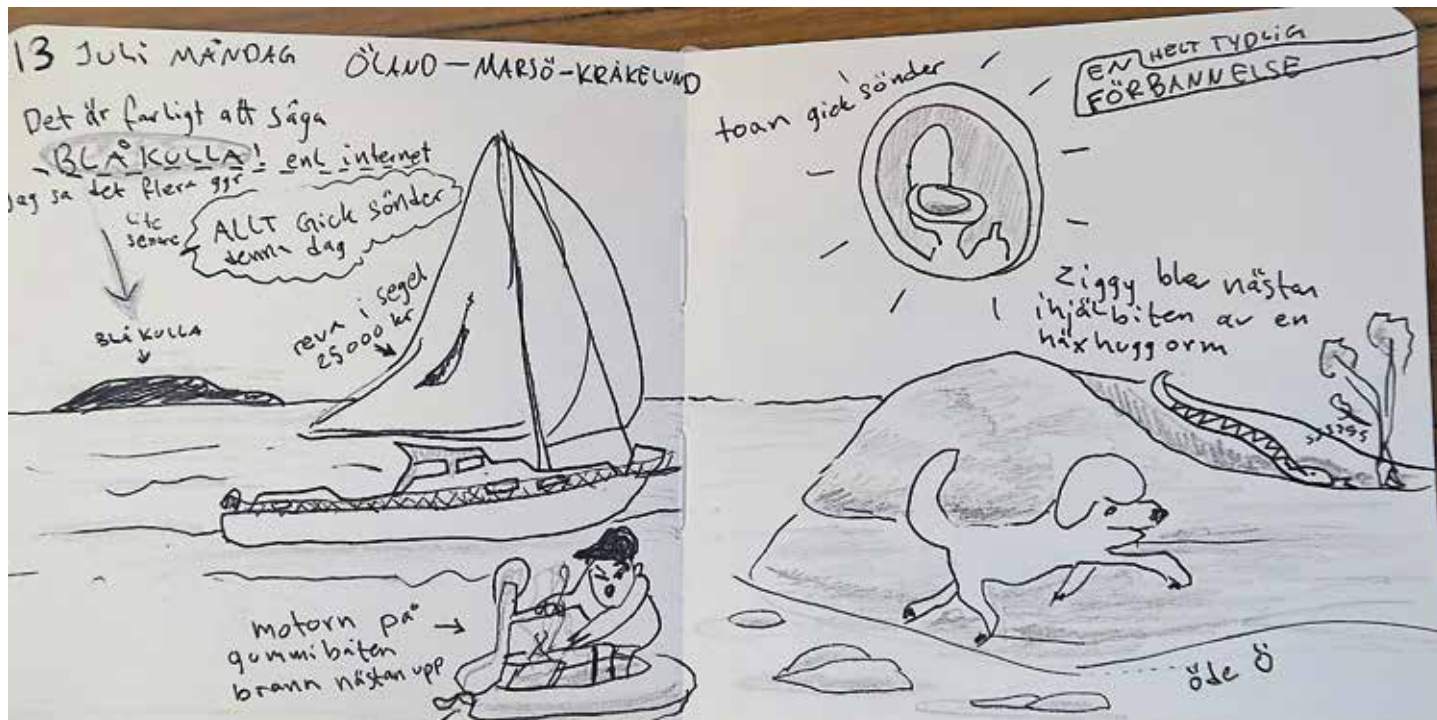 13 JULI MÅNDAG ÖLAND – MARSÖ – KRÅKELUND
Det är farligt att säga
BLÅKULLA! enl internet
Jag sa det flera ggr
Lite
senare
ALLT Gick sönder
denna dag
BLÅKULLA
reva i segel
25000 kr
motorn på
gummibåten
brann nästan upp
toan gick sönder
EN HELT TYDLIG
FÖRBANNELSE
Ziggy blev nästan
ihjälbiten av en
häxhuggorm
öde ö